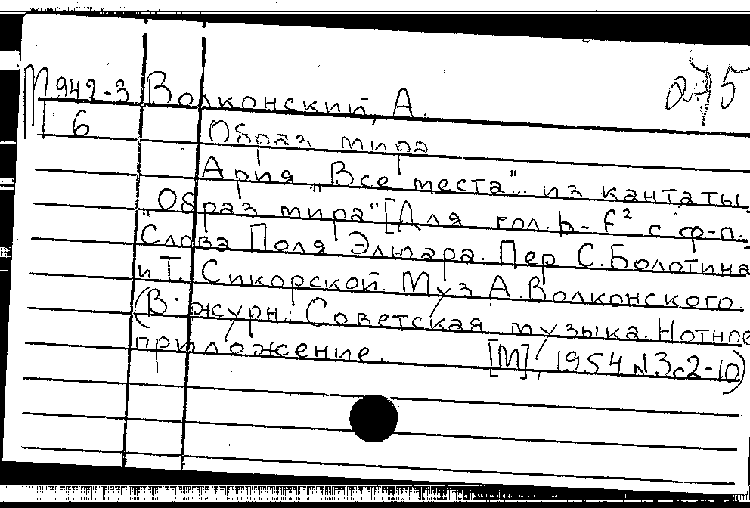 275
П942-3 Волконский, А.
6 Образ мира
Ария „Все места" из кантаты
„Образ мира" [Для гол. h-f² с ф-п.
Слова Поля Элюара. Пер С. Болотина
и Т. Сикорской. Муз А. Волконского.
(В журн. Советская музыка. Нотное
приложение. [М], 1954 N.3 с 2-10)